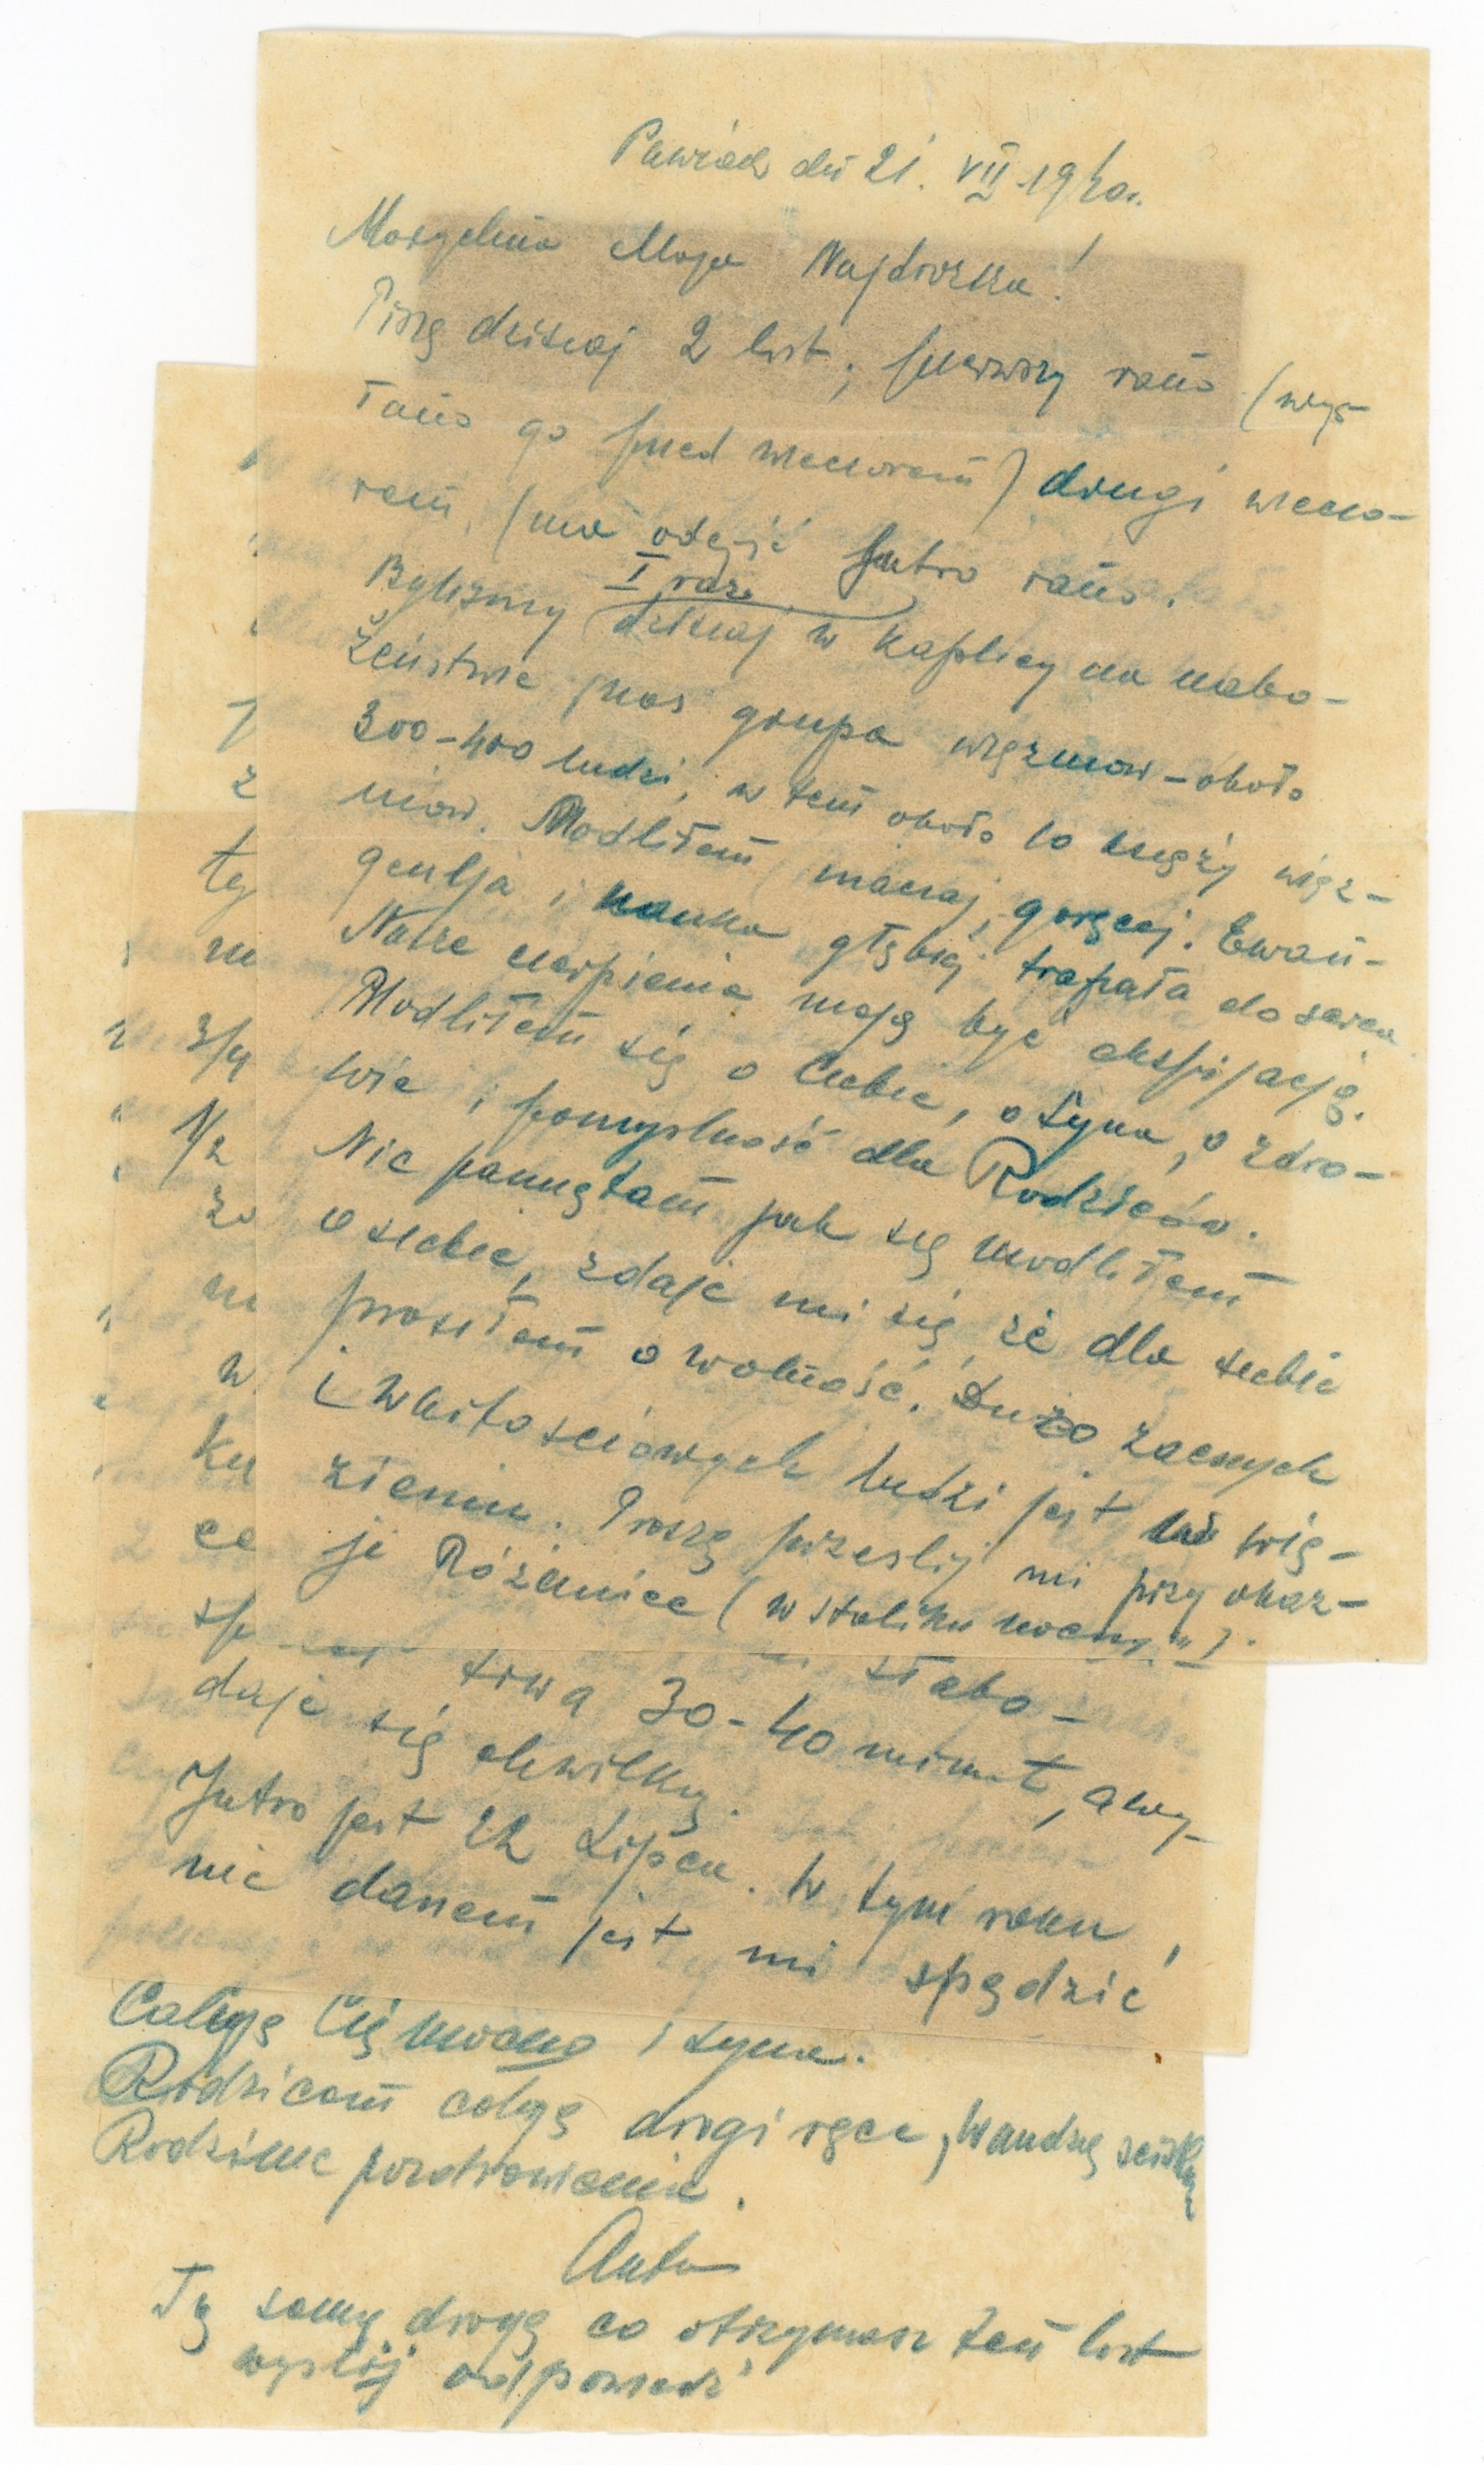 Pawiak dn 21. VII 1940r.
Marychna Moja Najdroższa!
Piszę dzisiaj 2 list; pierwszy rano (wys-
łano go przed wieczorem) drugi wieczo-
rem, (ma odejść jutro rano.
I raz
Byliśmy dzisiaj w kaplicy na nabo-
żeństwie nas grupa więzniow – około
300–400 ludzi, w tem około 10 księży więz-
niow. Modliłem inaczej, goręcej. Ewan-
gelja i nauka głębiej trafiała do serca
Nasze cierpienia mają być ekspijacją.
Modliłem się o Ciebie, o Syna, o zdro-
wie i pomyslność dla Rodziców.
Nie pamiętam jak się modliłem
o siebie, zdaje mi się że dla siebie
prosiłem o wolność. Dużo zacnych
i wartosciowych ludzi jest we wię-
zieniu. Proszę przeslij mi przy okaz-
ji Różaniec (w stoliku nocnym).
T
z
ty
m
3/4
1/2
zo
m
w
ku
ce
sp słabo –
trwa 30–40 minut, a wy-
daje się chwilką.
Jutro jest 22 Lipca. W tym roku,
nie danem jest mi spędzić
Całuję Cię mocno i Syna.
Rodzicom całuję drogi ręce, Wandzię sciskam
Rodzinne pozdrowienia.
Anto
Tą samą drogą co otrzymasz ten list
wyslij odpowiedź